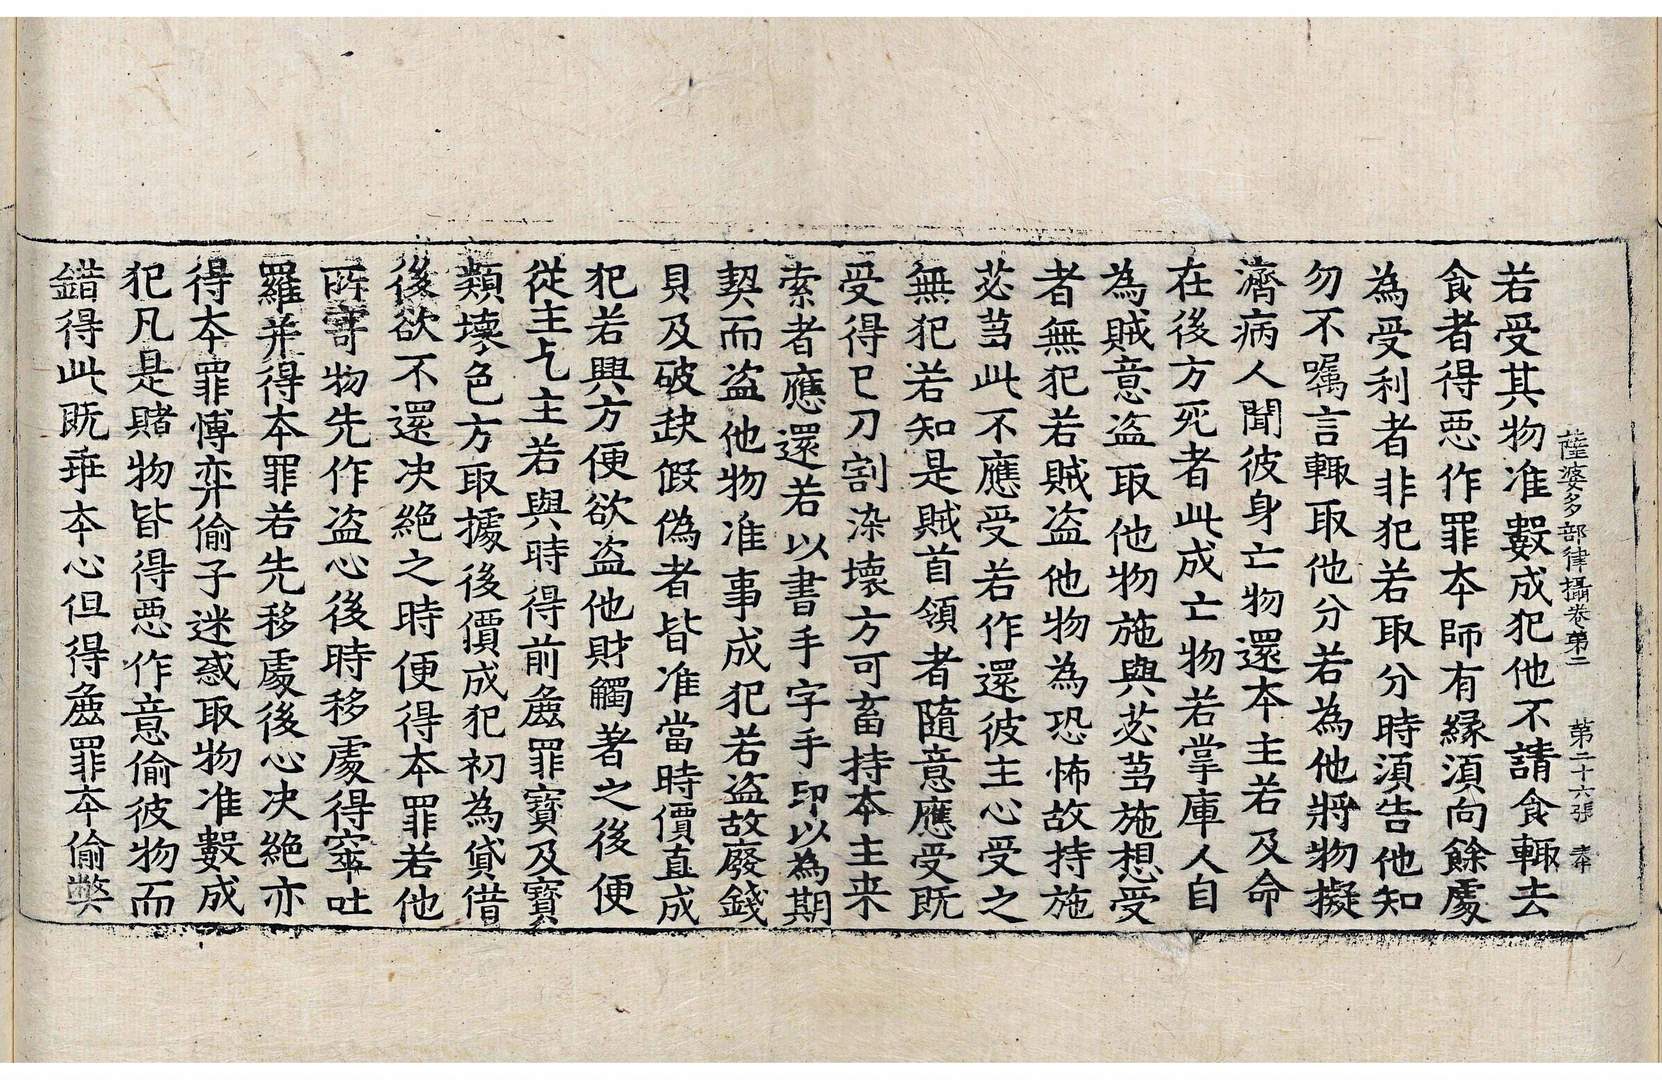 薩婆多部律攝卷第二　第二十六張　奉
若受其物准數成犯他不請食輙去
食者得惡作罪本師有緣湏向餘處
為受利者非犯若取分時湏告他知
勿不囑言輙取他分若為他將物擬
濟病人聞彼身亡物還本主若及命
在後方死者此成亡物若掌庫人自
為賊意盗取他物施與苾芻施想受
者無犯若賊盗他物為恐怖故持施
苾芻此不應受若作還彼主心受之
無犯若知是賊首領者隨意應受既
受得已刀割染壞方可畜持本主来
索者應還若以書手字手印以為期
契而盗他物准事成犯若盗故廢錢
貝及破缺假偽者皆准當時價直成
犯若興方便欲盗他財觸著之後便
從主乞主若與時得前麁罪寶及寶
類壞色方取據後價成犯初為貸借
後欲不還决絕之時便得本罪若他
所寄物先作盗心後時移處得窣吐
羅并得本罪若先移處後心决絕亦
得本罪愽弈偷子迷惑取物准數成
犯凡是賭物皆得惡作意偷彼物而
錯得此既乖本心但得麁罪本偷弊